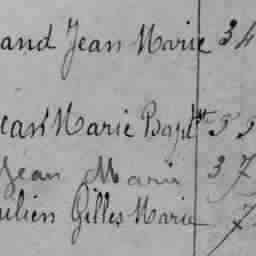 and Jean Marie 34
ean Marie Bapt^te 5 2
Jean Marie 37
ulien Gilles Marie 7